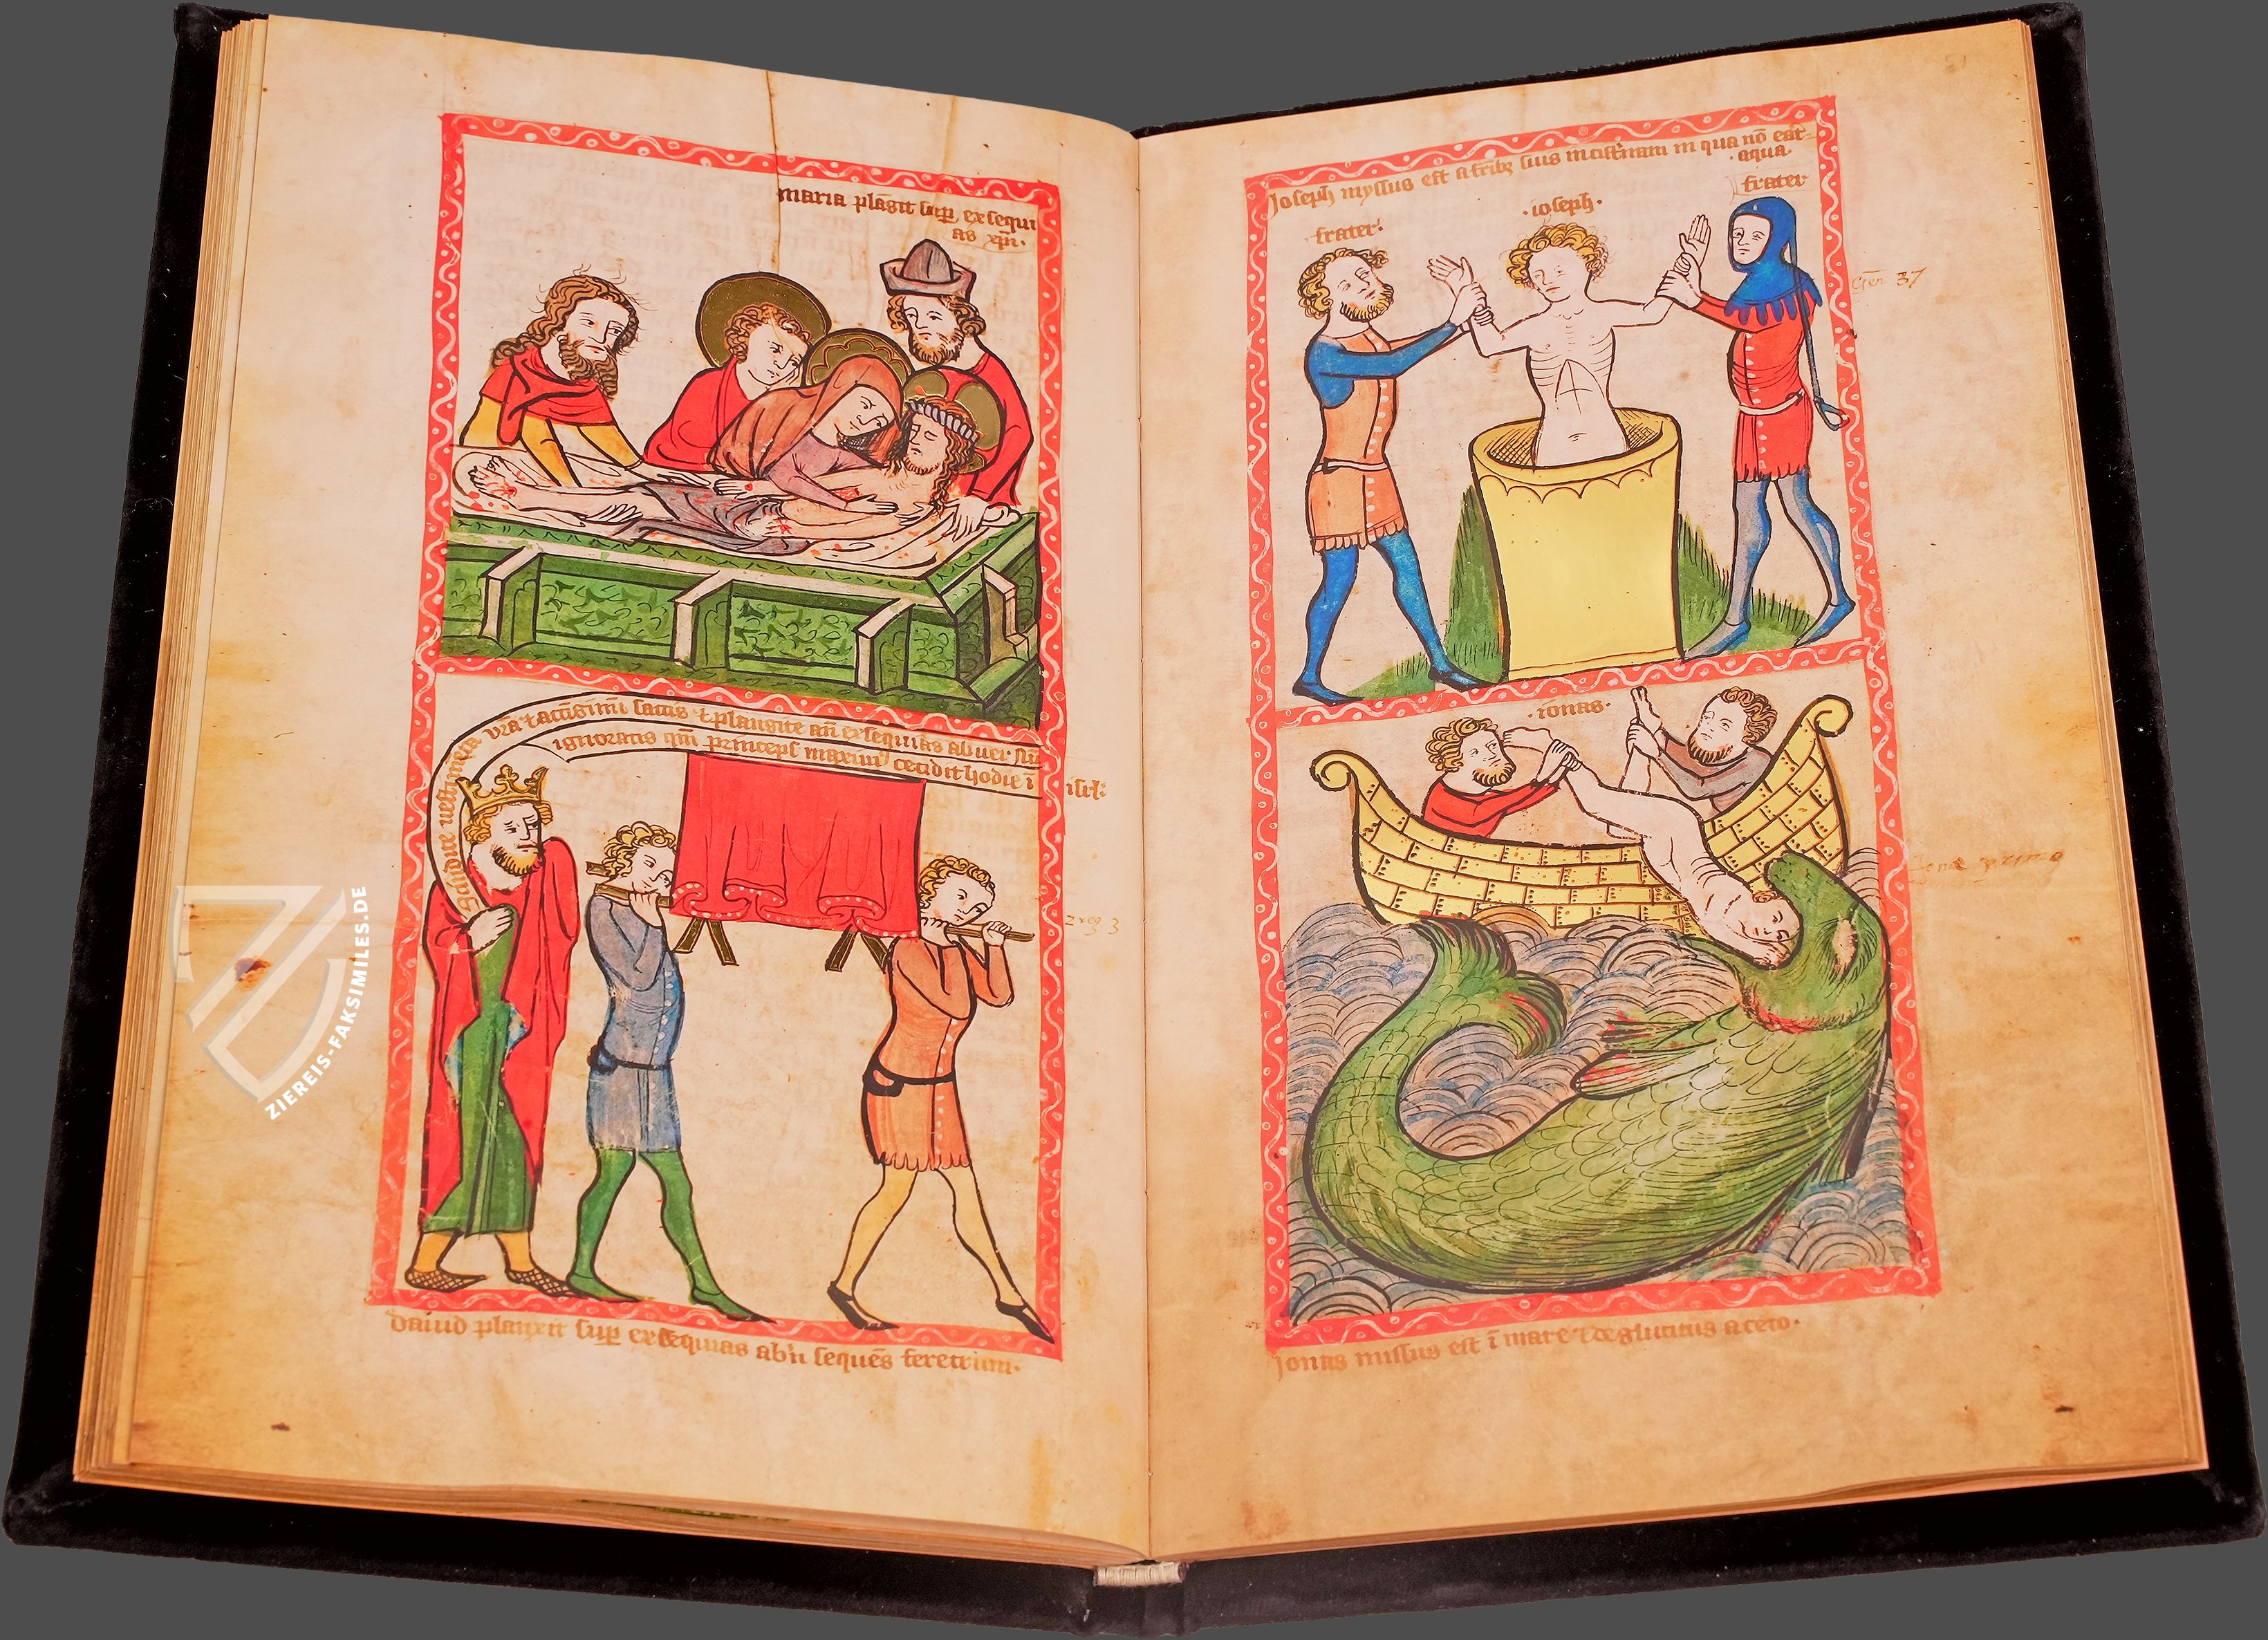 maria plāgit sup exequi
as xpi.
Scindite vestimenta vra t accīgimi saccis t plangite an exsequias abner nū
ignoratis qm princeps maximus cecidit hodie ī isrl:
2 reg 3
dauid planxit sup exequias abn sequēs feretrum.
51
Joseph myssus est a frībz suis in cisternam in qua nō erat
aqua.
frater.
.ioseph.
frater
Gen 37
.ionas.
Jonas missus est ī mare t deglutitus a ceto.
ZIEREIS-FAKSIMILES.DE